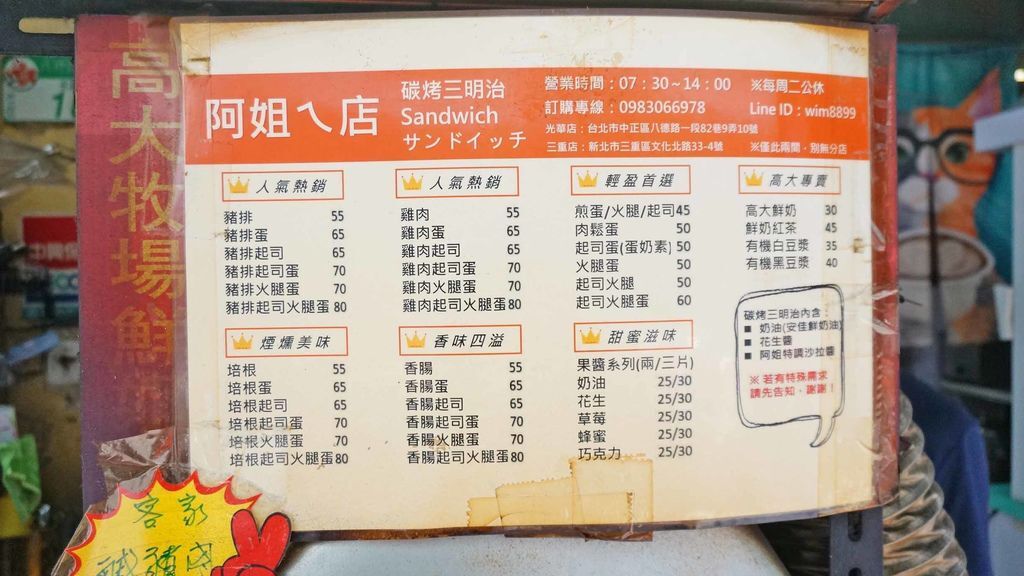 高大牧場鮮
阿姐ㄟ店
碳烤三明治
Sandwich
サンドイッチ
營業時間：07：30～14：00
※每周二公休
訂購專線：0983066978
Line ID：wim8899
光華店：台北市中正區八德路一段82巷9弄10號
三重店：新北市三重區文化北路33-4號
※僅此兩間，別無分店
人氣熱銷
豬排 55
豬排蛋 65
豬排起司 65
豬排起司蛋 70
豬排火腿蛋 70
豬排起司火腿蛋80
人氣熱銷
雞肉 55
雞肉蛋 65
雞肉起司 65
雞肉起司蛋 70
雞肉火腿蛋 70
雞肉起司火腿蛋80
輕盈首選
煎蛋/火腿/起司45
肉鬆蛋 50
起司蛋(蛋奶素) 50
火腿蛋 50
起司火腿 50
起司火腿蛋 60
高大專賣
高大鮮奶 30
鮮奶紅茶 45
有機白豆漿 35
有機黑豆漿 40
煙燻美味
培根 55
培根蛋 65
培根起司 65
培根起司蛋 70
培根火腿蛋 70
培根起司火腿蛋80
香味四溢
香腸 55
香腸蛋 65
香腸起司 65
香腸起司蛋 70
香腸火腿蛋 70
香腸起司火腿蛋80
甜蜜滋味
果醬系列(兩/三片)
奶油 25/30
花生 25/30
草莓 25/30
蜂蜜 25/30
巧克力 25/30
碳烤三明治內含：
■ 奶油(安佳鮮奶油)
■ 花生醬
■ 阿姐特調沙拉醬
※若有特殊需求
請先告知，謝謝！
客家
鹹豬肉